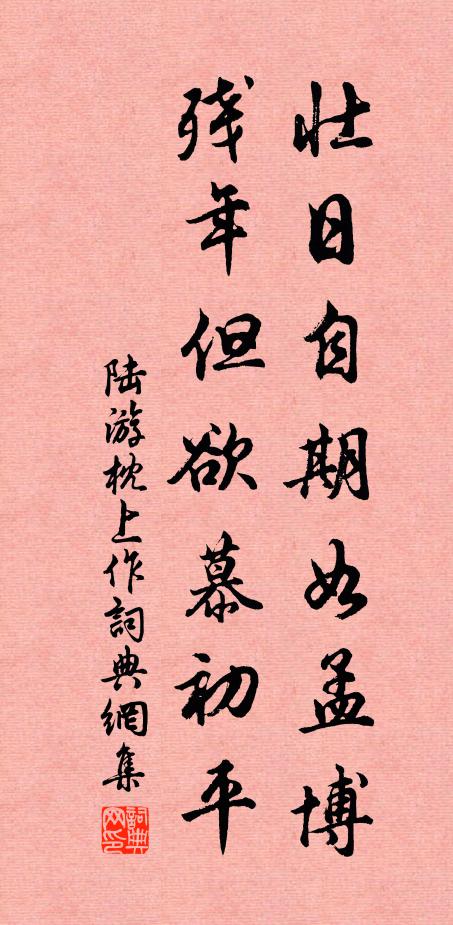 壯日自期如孟博
殘年但欲慕初平
陸游枕上作詞典網集
詞典
网印